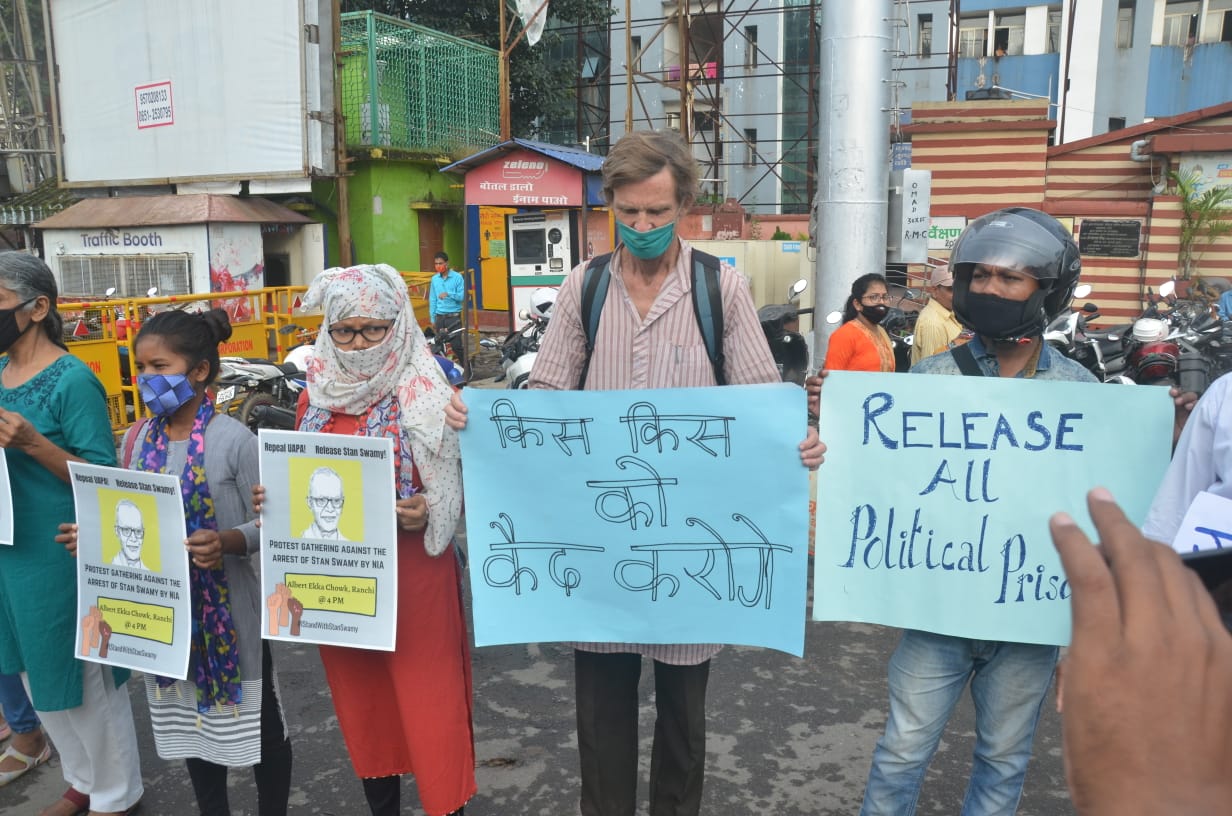 9570208133
0651-2530795
Traffic Booth
zeleno
बोतल डालो
ईनाम पाओ
ORPORATION
OMAD
30XF
R.M.C
Repeal UAPA! Release Stan Swamy!
Protest gathering against the
arrest of Stan Swamy by NIA
Albert Ekka Chowk, Ranchi
@ 4 PM
#IStandWithStanSwamy
Repeal UAPA! Release Stan Swamy!
Protest gathering against the
arrest of Stan Swamy by NIA
Albert Ekka Chowk, Ranchi
@ 4 PM
#IStandWithStanSwamy
किस किस
को
कैद करोगे
RELEASE
All
Political Pris